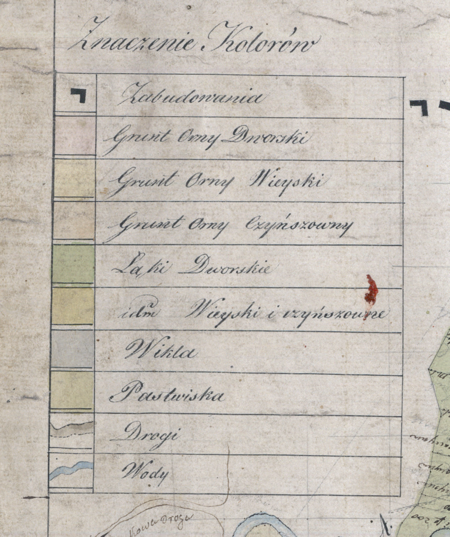 Znaczenie Kolorów
Zabudowania
Grunt Orny Dworski
Grunt Orny Wieyski
Grunt Orny Czyńszowny
Łąki Dworskie
idm Wieyski i czyńszowne
Wikla
Pastwiska
Drogi
Wody
Droga